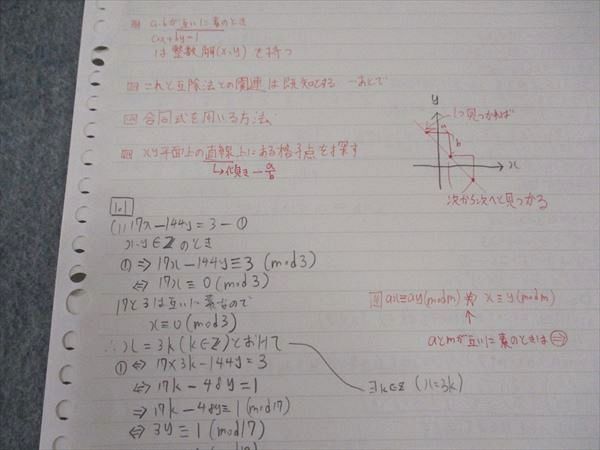 a,bが互いに素のとき
ax+by=1
は整数解(x,y)を持つ
これと互除法との関連は既知とする …あとで
合同式を用いる方法
xy平面上の直線上にある格子点を探す
↳傾き -a/b
y
1つ見つかれば
a
b
x
次から次へと見つかる
1.1
(1) 17x-144y=3 -①
x,y∈ℤのとき
①⇒ 17x-144y≡3 (mod3)
⇔ 17x≡0 (mod3)
17と3は互いに素なので
x≡0 (mod3)
∴x=3k (k∈ℤ)とおけて
①⇔ 17×3k-144y=3
⇔ 17k-48y=1
⇒ 17k-48y≡1 (mod17)
⇔ 3y≡1 (mod17)
ax≡ay(mod m) ⇏ x≡y(mod m)
↑
aとmが互いに素のときは⇒
∃k∈ℤ (x=3k)